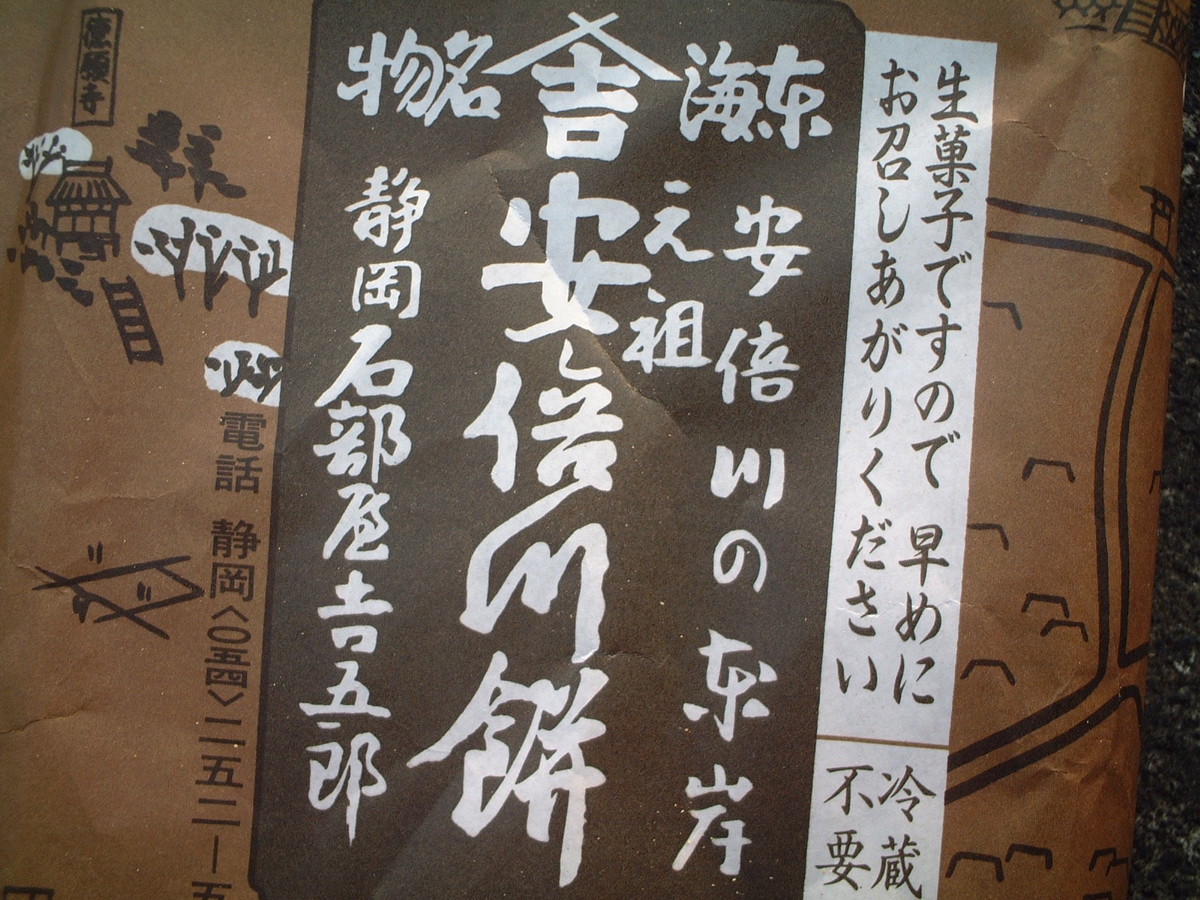 生菓子ですので 早めに
お召しあがりください
冷蔵
不要
東海
名物
安倍川の东岸
元祖
安倍川餅
静岡 石部屋吉五郎
電話 静岡〈〇五四〉二五二ー五
徳願寺